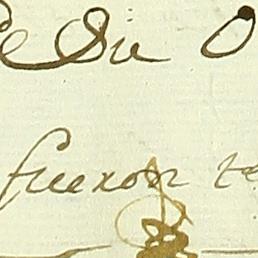 de Su
fueron te